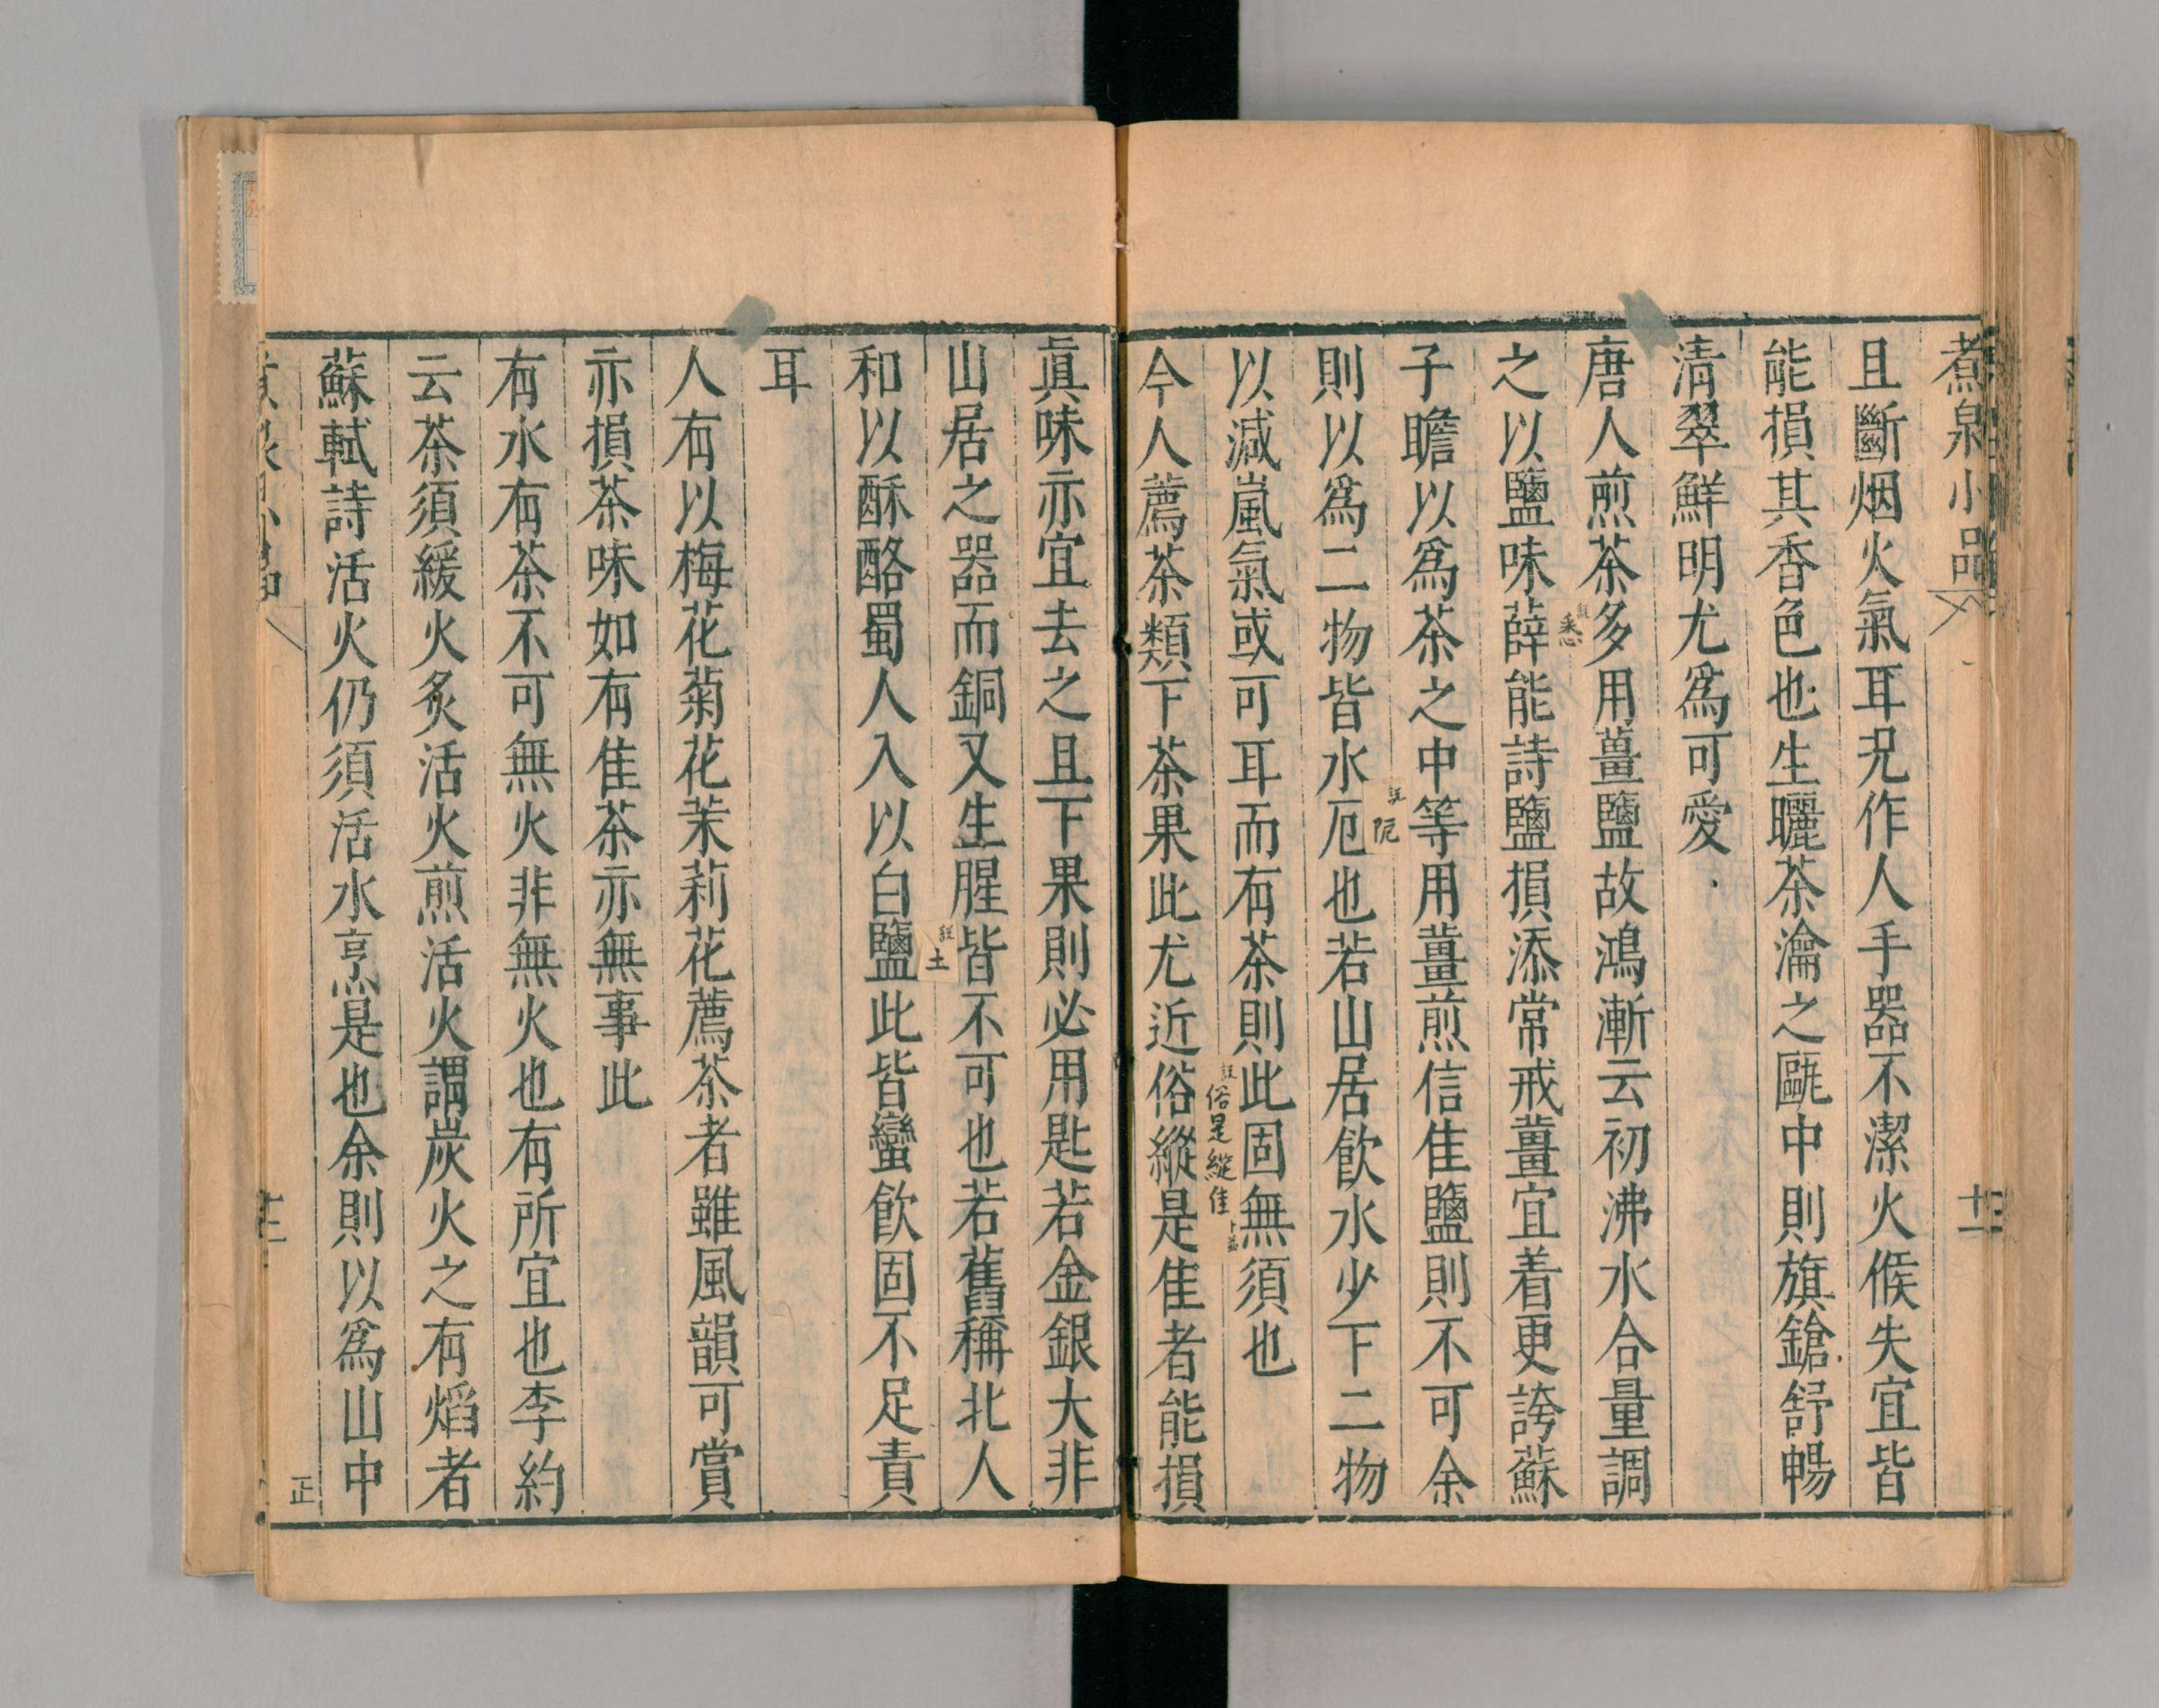 煮泉小品
十二
且斷烟火氣耳况作人手器不潔火候失宜皆
能損其香色也生曬茶瀹之甌中則旗鎗舒暢
清翠鮮明尤爲可愛
唐人煎茶多用薑鹽故鴻漸云初沸水合量調
之以鹽味薛能詩鹽損添常戒薑宜着更誇蘇
子瞻以爲茶之中等用薑煎信佳鹽則不可余
則以爲二物皆水厄也若山居飲水少下二物
阨
以減嵐氣或可耳而有茶則此固無須也
俗是縱佳
今人薦茶類下茶果此尤近俗縱是佳者能損
眞味亦宜去之且下果則必用匙若金銀大非
山居之器而銅又生腥皆不可也若舊稱北人
土
和以酥酪蜀人入以白鹽此皆蠻飲固不足責
耳
人有以梅花菊花茉莉花薦茶者雖風韻可賞
亦損茶味如有佳茶亦無事此
有水有茶不可無火非無火也有所宜也李約
云茶須緩火炙活火煎活火謂炭火之有焰者
蘇軾詩活火仍須活水烹是也余則以爲山中
正